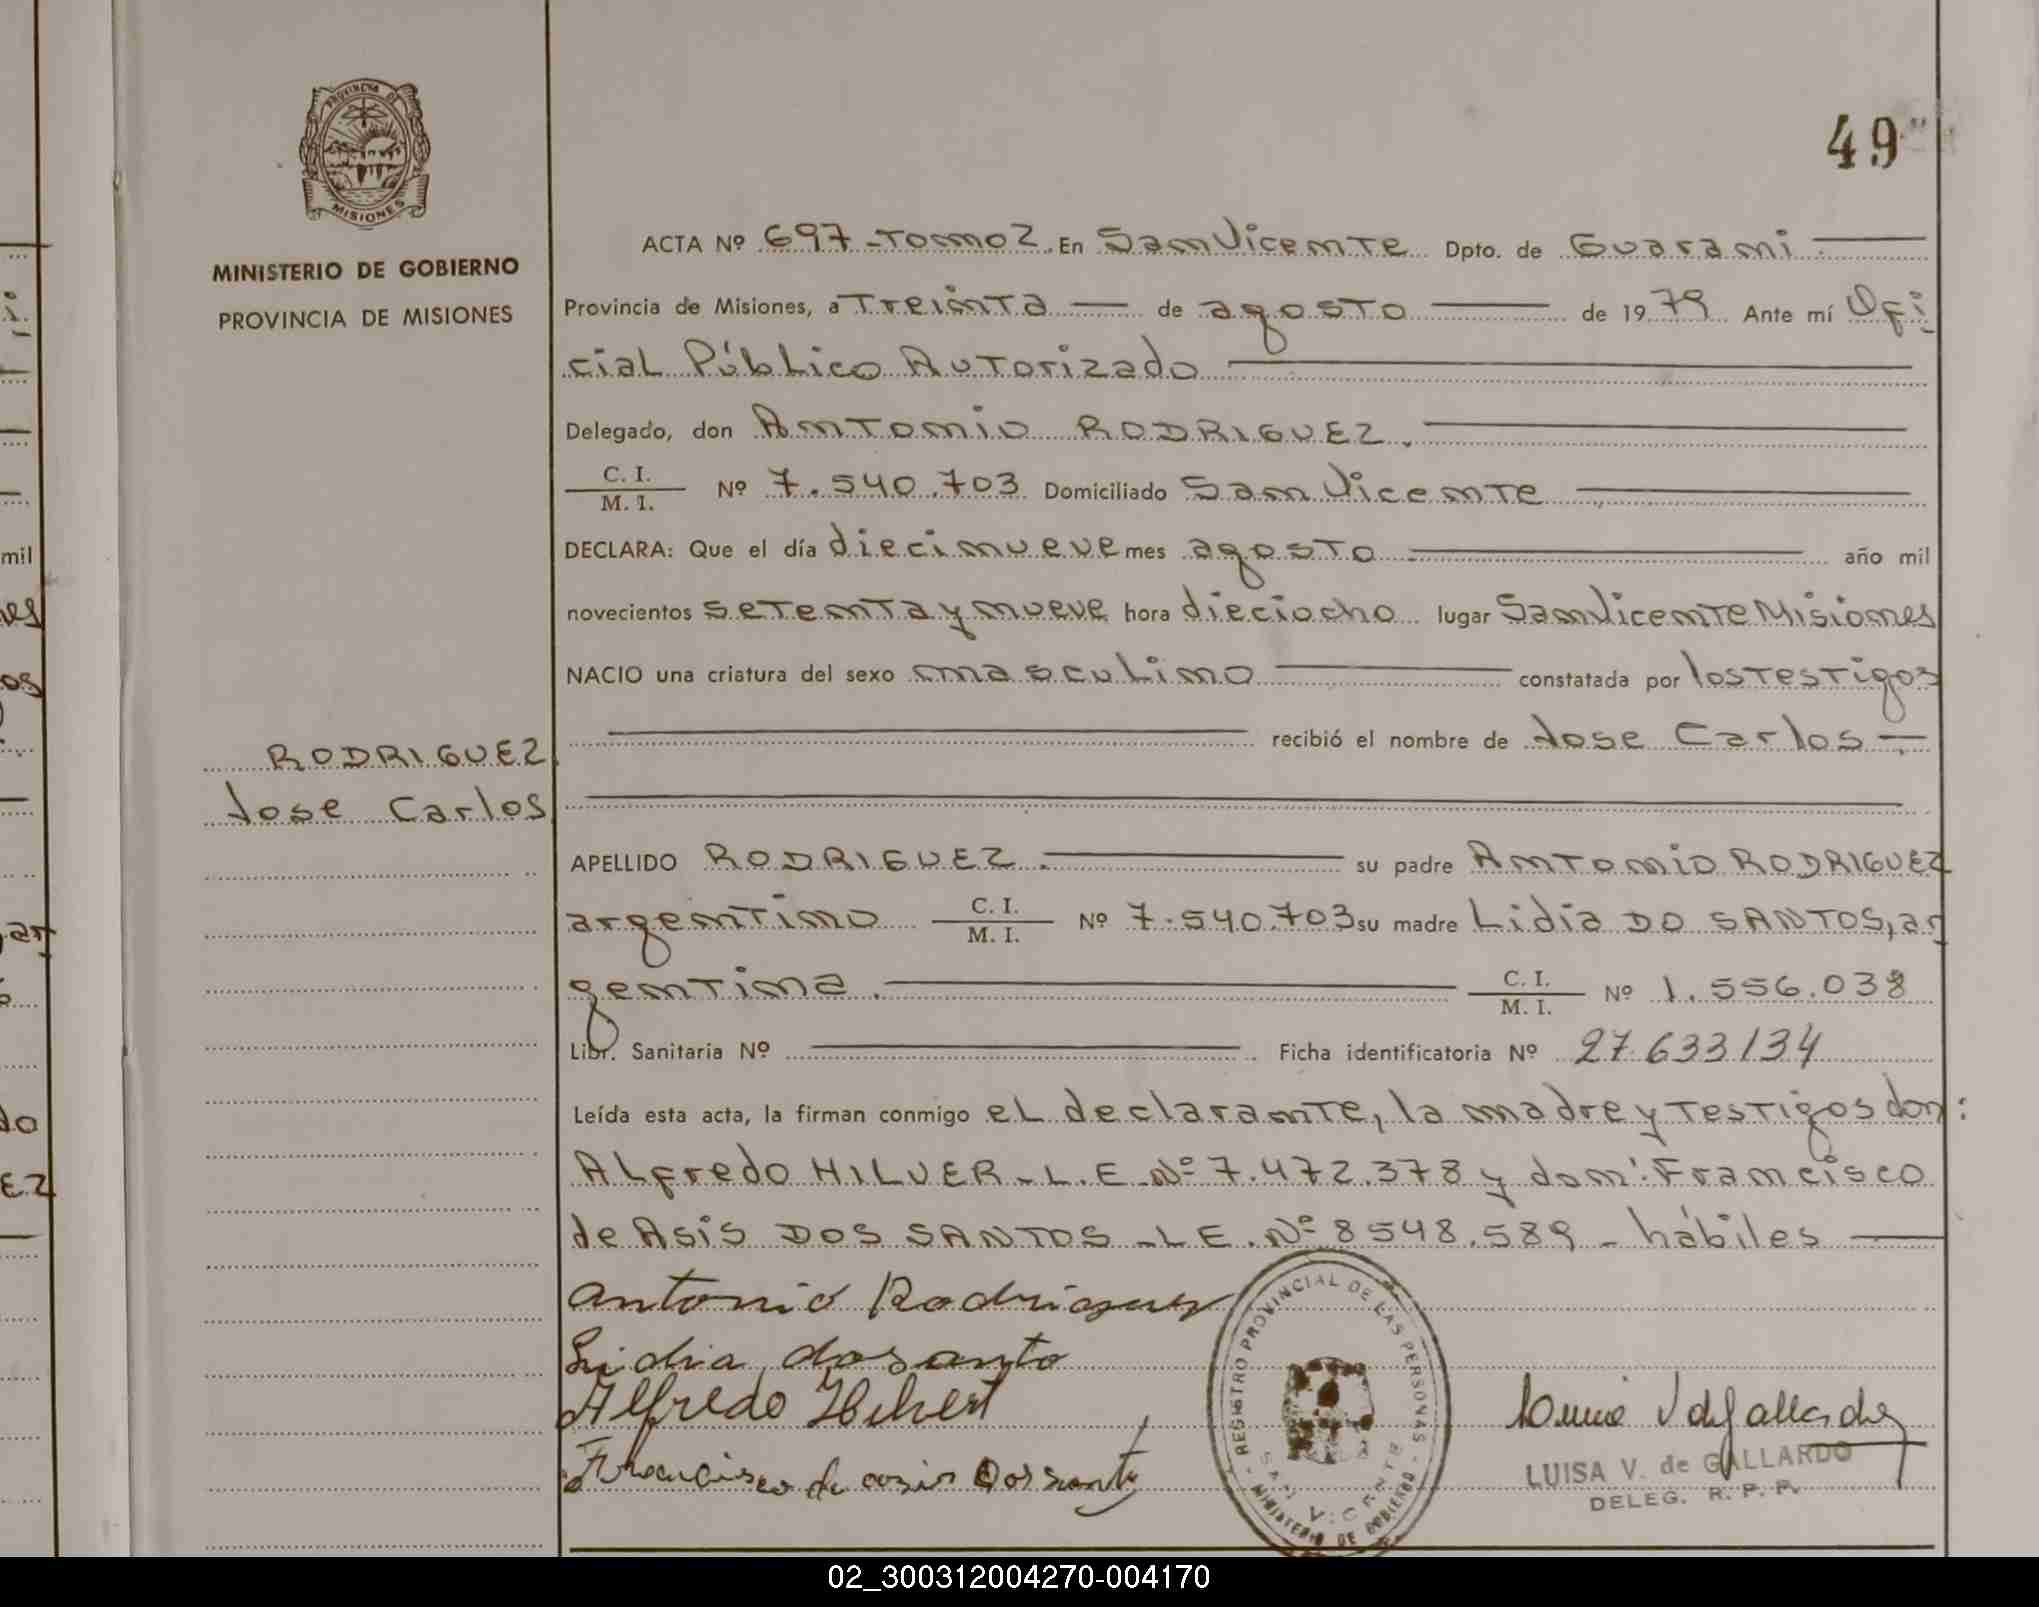 PROVINCIA DE
MISIONES
MINISTERIO DE GOBIERNO
PROVINCIA DE MISIONES
49
ACTA Nº 697 - Tomo 2. En San Vicente Dpto. de Guarani
Provincia de Misiones, a Treinta de agosto de 1979 Ante mí Ofi
cial Público Autorizado
Delegado, don Antonio RODRIGUEZ.
C. I.
M. I. Nº 7.540.703 Domiciliado San Vicente
DECLARA: Que el día diecinueve mes agosto año mil
novecientos setenta y nueve hora dieciocho lugar San Vicente Misiones
NACIO una criatura del sexo masculino constatada por los testigos
recibió el nombre de Jose Carlos
RODRIGUEZ
Jose Carlos
APELLIDO RODRIGUEZ. su padre Antonio RODRIGUEZ
argentino C. I. M. I. Nº 7.540.703 su madre Lidia DO SANTOS, ar
gentina. C. I. M. I. Nº 1.556.038
Libr. Sanitaria Nº Ficha identificatoria Nº 27.633134
Leída esta acta, la firman conmigo el declarante, la madre y testigos don:
Alfredo HILVER - L.E. Nº 7.472.378 y don: Francisco
de Asis DOS SANTOS - L E. Nº 8548.589 - hábiles
Antonio Rodriguez
Lidia dosanto
Alfredo
Francisco de asis Dos Santos
REGISTRO PROVINCIAL DE LAS PERSONAS
SAN VICENTE
MINISTERIO DE GOBIERNO
LUISA V. de GALLARDO
DELEG. R. P. P.
mil
02_300312004270-004170